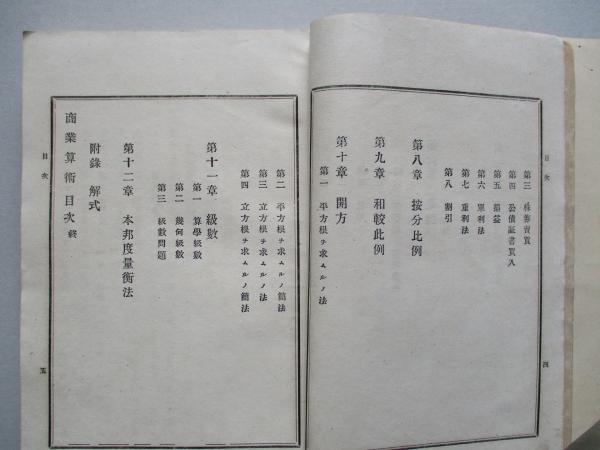 目次
第三 株券賣買
第四 公債証書買入
第五 損益
第六 單利法
第七 重利法
第八 割引
第八章 按分比例
第九章 和較比例
第十章 開方
第一 平方根ヲ求ムルノ法
四
第二 平方根ヲ求ムルノ簡法
第三 立方根ヲ求ムルノ法
第四 立方根ヲ求ムルノ簡法
第十一章 級數
第一 算學級數
第二 幾何級數
第三 級數問題
第十二章 本邦度量衡法
附錄 解式
商業算術目次 終
目次
五